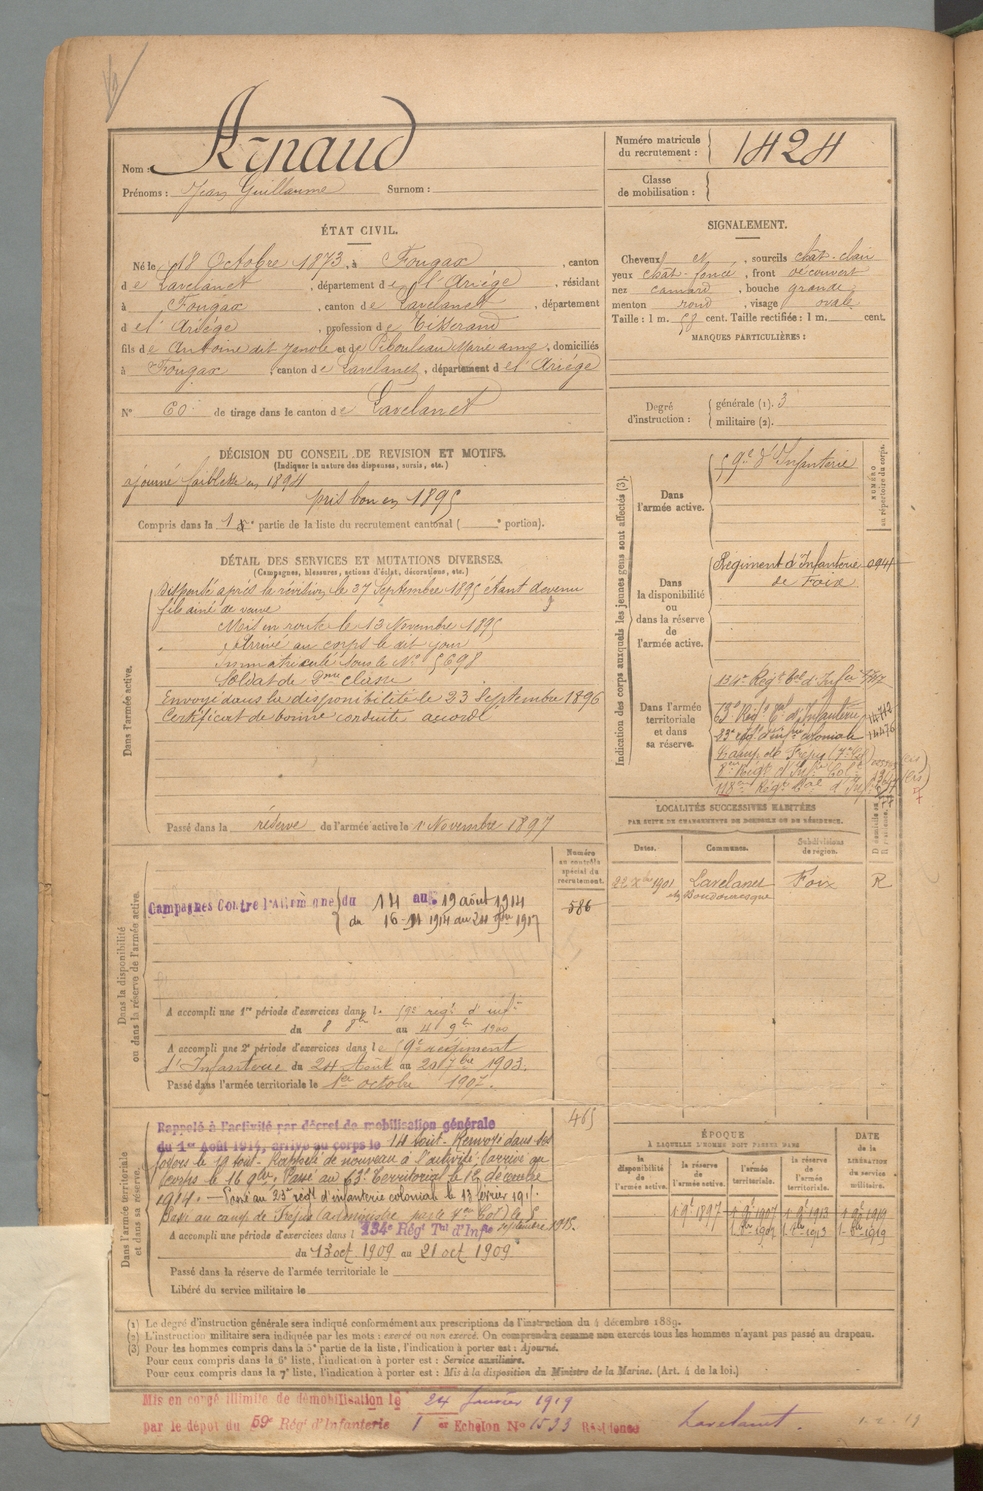 Nom : Arnaud
Prénoms : Jean Guillaume Surnom :
Numéro matricule du recrutement : 1424
Classe de mobilisation :
ÉTAT CIVIL.
Né le 18 Octobre 1873, à Fougax, canton
de Lavelanet, département de l'Ariège, résidant
à Fougax, canton de Lavelanet, département
de l'Ariège, profession de Tisserand
fils de Antoine dit Janole et de Pibouleau Marie anne, domiciliés
à Fougax, canton de Lavelanet, département de l'Ariège
N° 60 de tirage dans le canton de Lavelanet
SIGNALEMENT.
Cheveux et, sourcils chat-clair
yeux chat-foncé, front découvert
nez camard, bouche grande
menton rond, visage ovale
Taille : 1 m. cent. Taille rectifiée : 1 m. cent.
MARQUES PARTICULIÈRES :
Degré d'instruction : générale (1). 3
militaire (2).
DÉCISION DU CONSEIL DE REVISION ET MOTIFS.
(Indiquer la nature des dispenses, sursis, etc.)
ajourné faiblesse en 1894
pris bon en 1895
Compris dans la 1re partie de la liste du recrutement cantonal ( e portion).
DÉTAIL DES SERVICES ET MUTATIONS DIVERSES.
(Campagnes, blessures, actions d'éclat, décorations, etc.)
Dans l'armée active.
Dispensé après la révision le 27 Septembre 1895 étant devenu
fils ainé de veuve
Mis en route le 13 Novembre 1895
Arrivé au corps le dit jour
Immatriculé sous le N° 5698
Soldat de 2me classe
Envoyé dans la disponibilité le 23 Septembre 1896
Certificat de bonne conduite accordé
Passé dans la réserve de l'armée active le 1er Novembre 1897
Indication des corps auxquels les jeunes gens sont affectés (3).
NUMÉRO au répertoire du corps.
Dans l'armée active.
59e d'Infanterie
Dans la disponibilité ou dans la réserve de l'armée active.
Régiment d'Infanterie
de Foix
Dans l'armée territoriale et dans sa réserve.
134e Régt Tal d'Infie
63e Régt Tal d'Infanterie
23e régt d'infie coloniale 14476
Camp de Fréjus
8e Régt d'Inf Cole
118e Régt Tal d'Inf
LOCALITÉS SUCCESSIVES HABITÉES
PAR SUITE DE CHANGEMENTS DE DOMICILE OU DE RÉSIDENCE.
Dates. Communes. Subdivisions de région.
1901 Lavelanet Foix R
Dans la disponibilité ou dans la réserve de l'armée active.
Numéro au contrôle spécial du recrutement.
586
Campagnes Contre l'Allemagne du 14 au 19 août 1914
du 16-11 1914 au 24 1917
A accompli une 1re période d'exercices dans le 59e régt d'infie
du 8 8bre au 4 9bre 1900
A accompli une 2e période d'exercices dans le 59e régiment
d'Infanterie du 24 Août au 20 7bre 1903.
Passé dans l'armée territoriale le 1er octobre 1907.
Dans l'armée territoriale et dans sa réserve.
465
Rappelé à l'activité par décret de mobilisation générale
du 1er Août 1914, arrivé au corps le 14 août - Renvoyé dans ses
foyers le 19 août - Rappelé de nouveau à l'activité, arrivé au
corps le 16 9bre. Passé au 63e Territorial le 12 décembre
1914. - Passé au 23e régt d'infanterie colonial le 13 février 191
Passé au camp de Fréjus (administré par le Col) le 5
septembre 1915.
A accompli une période d'exercices dans l 134e Régt Tal d'Infie
du 13 oct 1909 au 21 oct 1909
Passé dans la réserve de l'armée territoriale le
Libéré du service militaire le
ÉPOQUE
À LAQUELLE L'HOMME DOIT PASSER DANS
DATE de la LIBÉRATION du service militaire.
la disponibilité de l'armée active. la réserve de l'armée active. l'armée territoriale. la réserve de l'armée territoriale.
1 9bre 1897 1 9bre 1907 1 9bre 1913 1 9bre 1919
1 8bre 1907 1 8bre 1913 1 8bre 1919
(1) Le degré d'instruction générale sera indiqué conformément aux prescriptions de l'instruction du 4 décembre 1889.
(2) L'instruction militaire sera indiquée par les mots : exercé ou non exercé. On comprendra comme non exercés tous les hommes n'ayant pas passé au drapeau.
(3) Pour les hommes compris dans la 5e partie de la liste, l'indication à porter est : Ajourné.
Pour ceux compris dans la 6e liste, l'indication à porter est : Service auxiliaire.
Pour ceux compris dans la 7e liste, l'indication à porter est : Mis à la disposition du Ministre de la Marine. (Art. 4 de la loi.)
Mis en congé illimité de démobilisation le 24 Janvier 1919
par le dépot du 59e Régt d'Infanterie 1er Echelon N° 1533 Résidence Lavelanet.